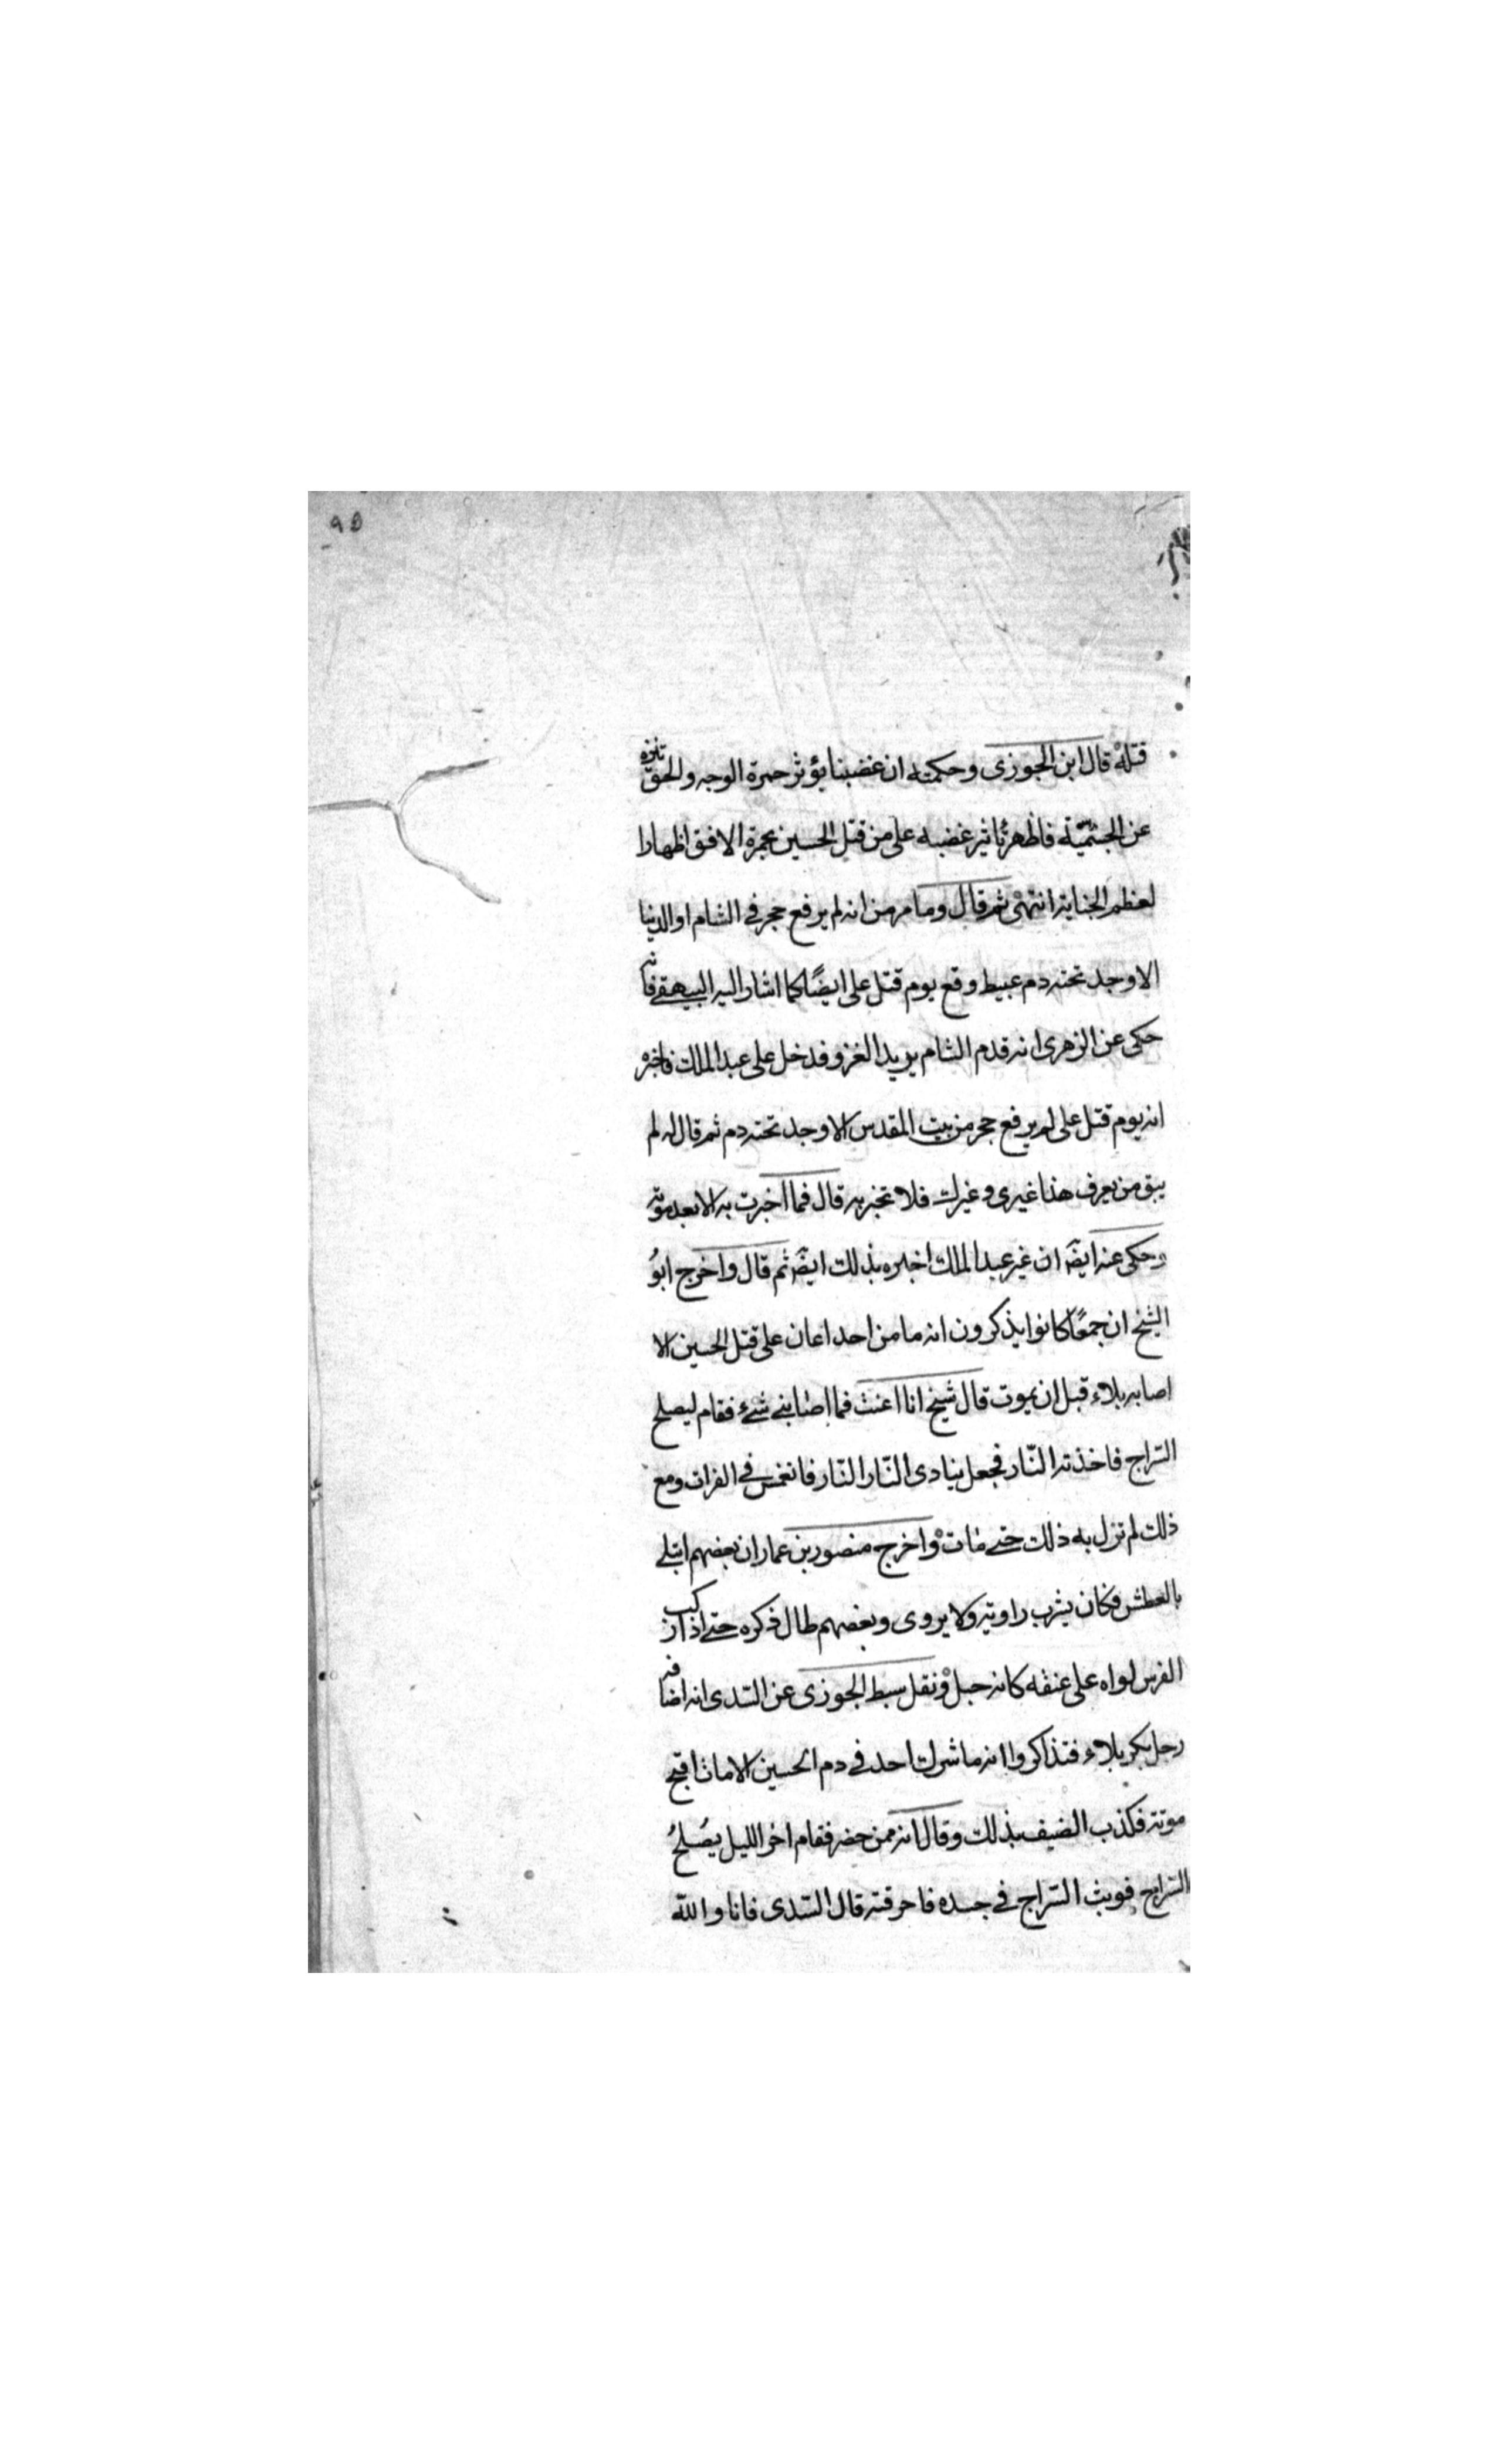 ٩٥
قتله قال ابن الجوزى وحكمته ان غضبنا يؤثر حمرة الوجه والحق تنزه
عن الجسميّة فاظهر تاثير غضبه على من قتل الحسين بحمرة الافق اظهارا
لعظم الجناية انتهى ثم قال ومامر من انه لم يرفع حجر فى الشام او الدنيا
الا وجد تحته دم عبيط وقع يوم قتل على ايضًا كما اشار اليه البيهقى فانه
حكى عن الزهرى انه قدم الشام يريد الغزو فدخل على عبد الملك فاخبره
انه يوم قتل على لم يرفع حجر من بيت المقدس الا وجد تحته دم ثم قال له لم
يبق من يعرف هذا غيرى وغيرك فلا تخبر به قال فما اخبرت به الا بعد موته
وحكى عنه ايضۤ ان غير عبد الملك اخبره بذلك ايضۤ ثم قال واخرج ابوُ
الشيخ ان جمعًا كانوا يذكرون انه ما من احد اعان على قتل الحسين الا
اصابه بلاء قبل ان يموت قال شيخ انا اعنت فما اصابنى شىء فقام ليصلح
السّراج فاخذته النّار فجعل ينادى النّار النّار فانغمس فى الفرات ومع
ذلك لم تزل به ذلك حتى مات واخرج منصور بن عمار ان بعضهم ابتلى
بالعطش فكان يشرب راوية ولا يروى وبعضهم طال ذكره حتى اذا ركب
الفرس لواه على عنقه كانه حبل ونقل سبط الجوزى عن السّدى انه اضافه
رجل بكربلاء فتذاكروا انه ما شرك احد فى دم الحسين الا مات اقبح
موتة فكذب الضيف بذلك وقال انه ممن حضر فقام اخر الليل يصُلحُ
السّراج فوثب السّراج فى جسده فاحرقته قال السّدى فانا والله